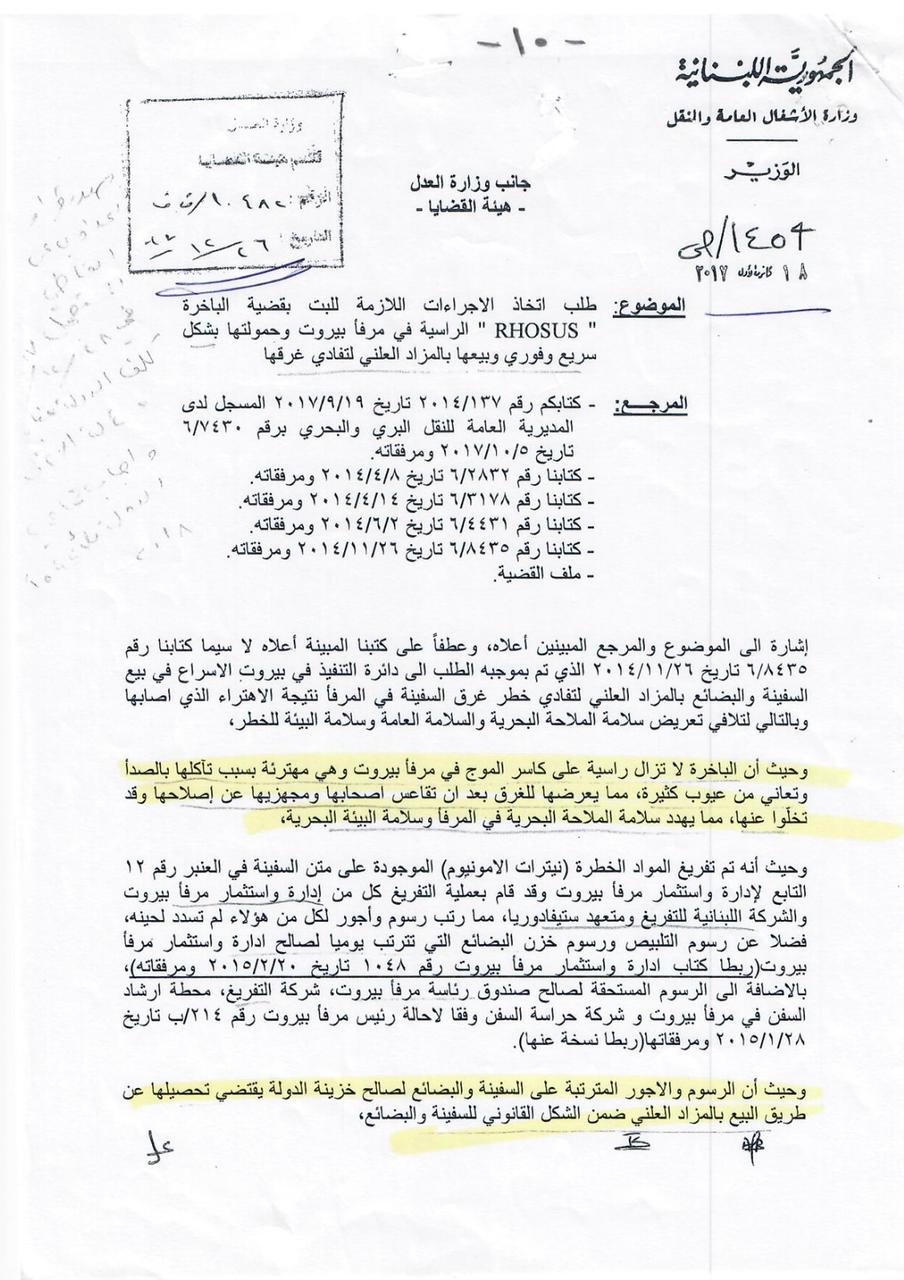 - ١٠ -
الجمهورية اللبنانية
وزارة الأشغال العامة والنقل
الوزير
١٤٥٦/ص
١٨ كانون الأول ٢٠١٧
وزارة العدل
الرقم: ١٠٤٨٢/ق ف
التاريخ: ٢٦/١٢/
جانب وزارة العدل
- هيئة القضايا -
الموضوع: طلب اتخاذ الاجراءات اللازمة للبت بقضية الباخرة
" RHOSUS " الراسية في مرفأ بيروت وحمولتها بشكل
سريع وفوري وبيعها بالمزاد العلني لتفادي غرقها
المرجع: - كتابكم رقم ٢٠١٤/١٣٧ تاريخ ٢٠١٧/٩/١٩ المسجل لدى
المديرية العامة للنقل البري والبحري برقم ٦/٧٤٣٠
تاريخ ٢٠١٧/١٠/٥ ومرفقاته.
- كتابنا رقم ٦/٢٨٣٢ تاريخ ٢٠١٤/٤/٨ ومرفقاته.
- كتابنا رقم ٦/٣١٧٨ تاريخ ٢٠١٤/٤/١٤ ومرفقاته.
- كتابنا رقم ٦/٤٤٣١ تاريخ ٢٠١٤/٦/٢ ومرفقاته.
- كتابنا رقم ٦/٨٤٣٥ تاريخ ٢٠١٤/١١/٢٦ ومرفقاته.
- ملف القضية.
إشارة الى الموضوع والمرجع المبينين أعلاه، وعطفاً على كتبنا المبينة أعلاه لا سيما كتابنا رقم
٦/٨٤٣٥ تاريخ ٢٠١٤/١١/٢٦ الذي تم بموجبه الطلب الى دائرة التنفيذ في بيروت الاسراع في بيع
السفينة والبضائع بالمزاد العلني لتفادي خطر غرق السفينة في المرفأ نتيجة الاهتراء الذي اصابها
وبالتالي لتلافي تعريض سلامة الملاحة البحرية والسلامة العامة وسلامة البيئة للخطر،
وحيث أن الباخرة لا تزال راسية على كاسر الموج في مرفأ بيروت وهي مهترئة بسبب تآكلها بالصدأ
وتعاني من عيوب كثيرة، مما يعرضها للغرق بعد ان تقاعس اصحابها ومجهزيها عن إصلاحها وقد
تخلّوا عنها، مما يهدد سلامة الملاحة البحرية في المرفأ وسلامة البيئة البحرية،
وحيث أنه تم تفريغ المواد الخطرة (نيترات الامونيوم) الموجودة على متن السفينة في العنبر رقم ١٢
التابع لإدارة واستثمار مرفأ بيروت وقد قام بعملية التفريغ كل من إدارة واستثمار مرفأ بيروت
والشركة اللبنانية للتفريغ ومتعهد ستيفادوريا، مما رتب رسوم وأجور لكل من هؤلاء لم تسدد لحينه،
فضلا عن رسوم التلبيص ورسوم خزن البضائع التي تترتب يوميا لصالح ادارة واستثمار مرفأ
بيروت(ربطا كتاب ادارة واستثمار مرفأ بيروت رقم ١٠٤٨ تاريخ ٢٠١٥/٢/٢٠ ومرفقاته)،
بالاضافة الى الرسوم المستحقة لصالح صندوق رئاسة مرفأ بيروت، شركة التفريغ، محطة ارشاد
السفن في مرفأ بيروت و شركة حراسة السفن وفقا لاحالة رئيس مرفأ بيروت رقم ٢١٤/ب تاريخ
٢٠١٥/١/٢٨ ومرفقاتها(ربطا نسخة عنها).
وحيث أن الرسوم والاجور المترتبة على السفينة والبضائع لصالح خزينة الدولة يقتضي تحصيلها عن
طريق البيع بالمزاد العلني ضمن الشكل القانوني للسفينة والبضائع،